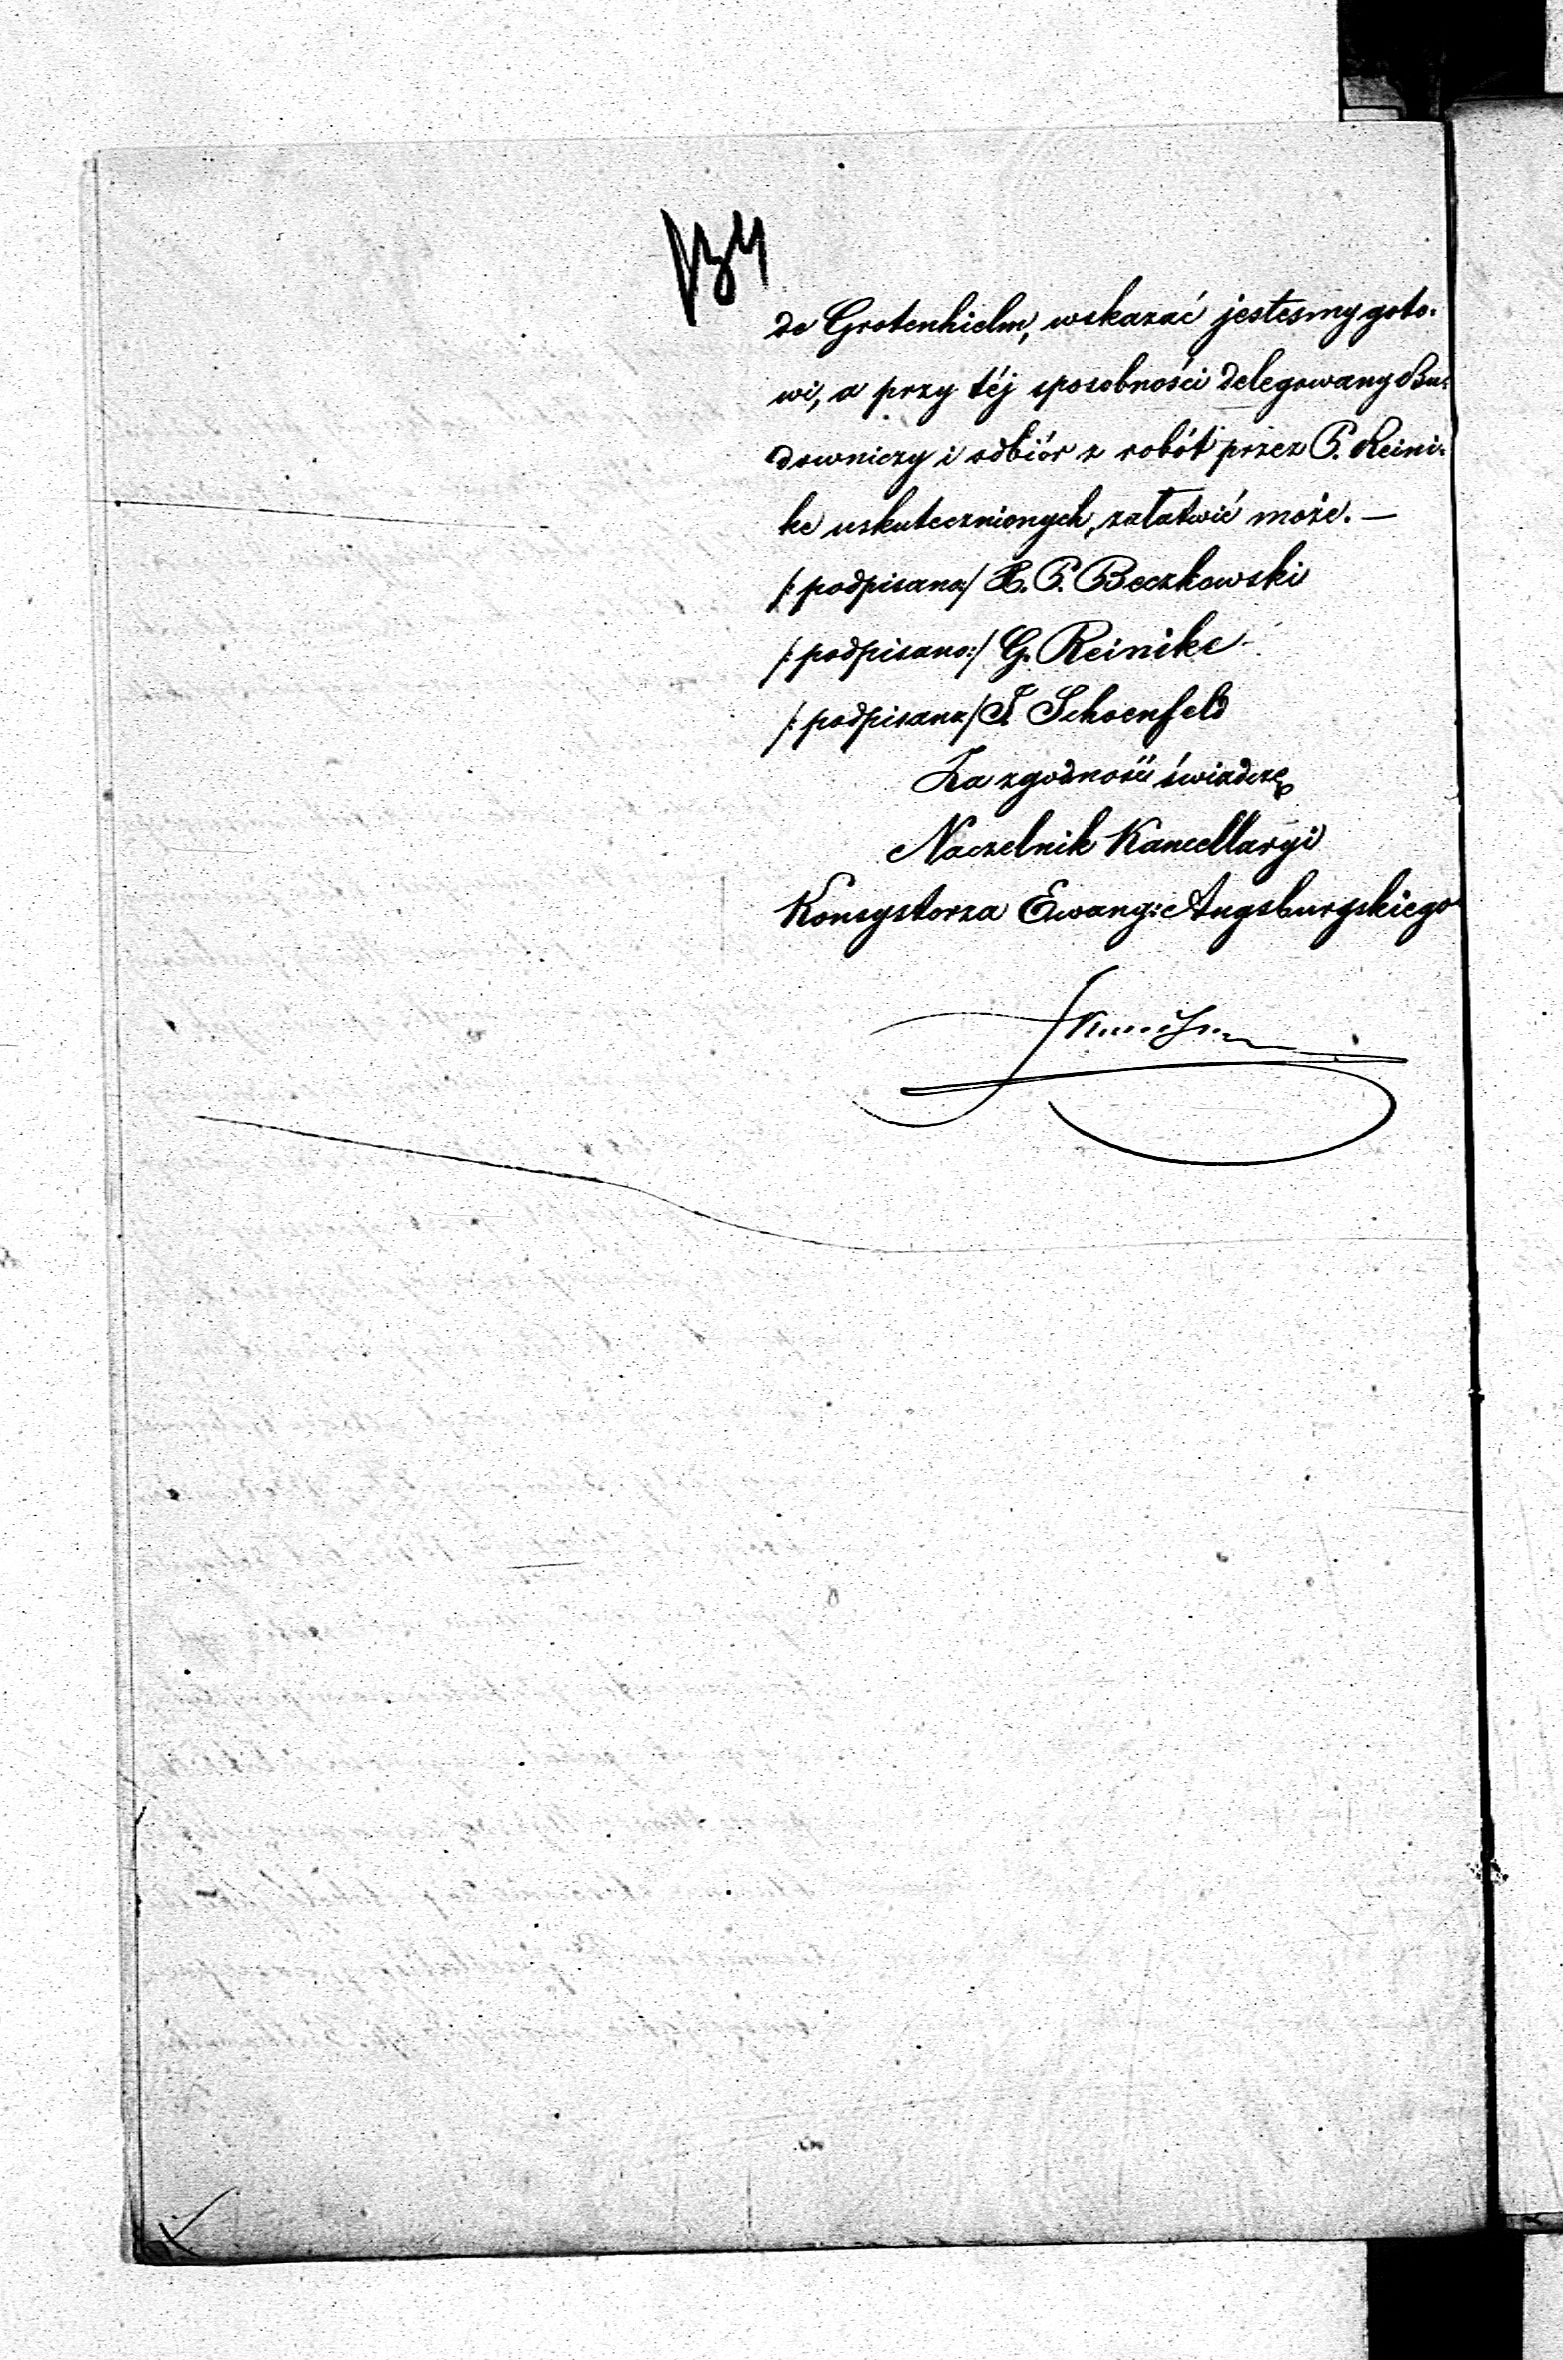 134
de Grotenhielm, wskazać jestesmy goto-
wi, a przy téj sposobności delegowany Bu-
downiczy i odbiór z robót przez P. Reini-
ke uskutecznionych, załatwić może. —
/: podpisano:/ H. P. Beczkowski
/: podpisano:/ G. Reinike
/: podpisano:/ F. Schoenfeld
Za zgodność świadczę
Naczelnik Kancellaryi
Konsystorza Ewang: Augsburgskiego